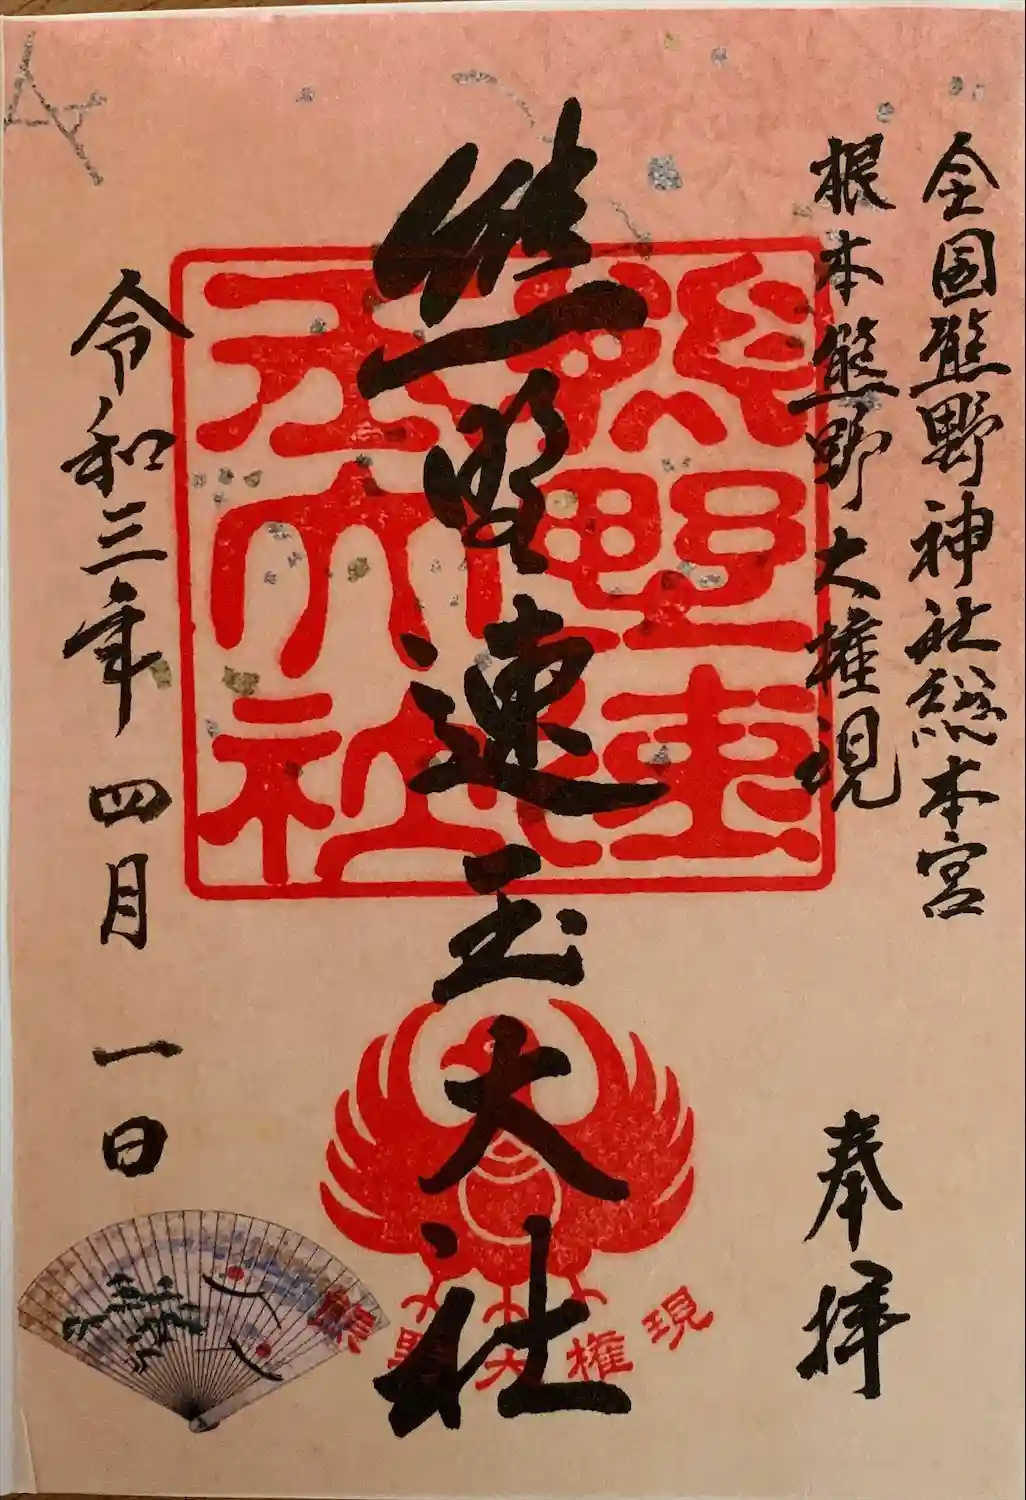 全国熊野神社総本宮
根本熊野大権現
奉拝
熊野速玉大社
令和三年四月一日
熊野速玉大社
熊野大権現